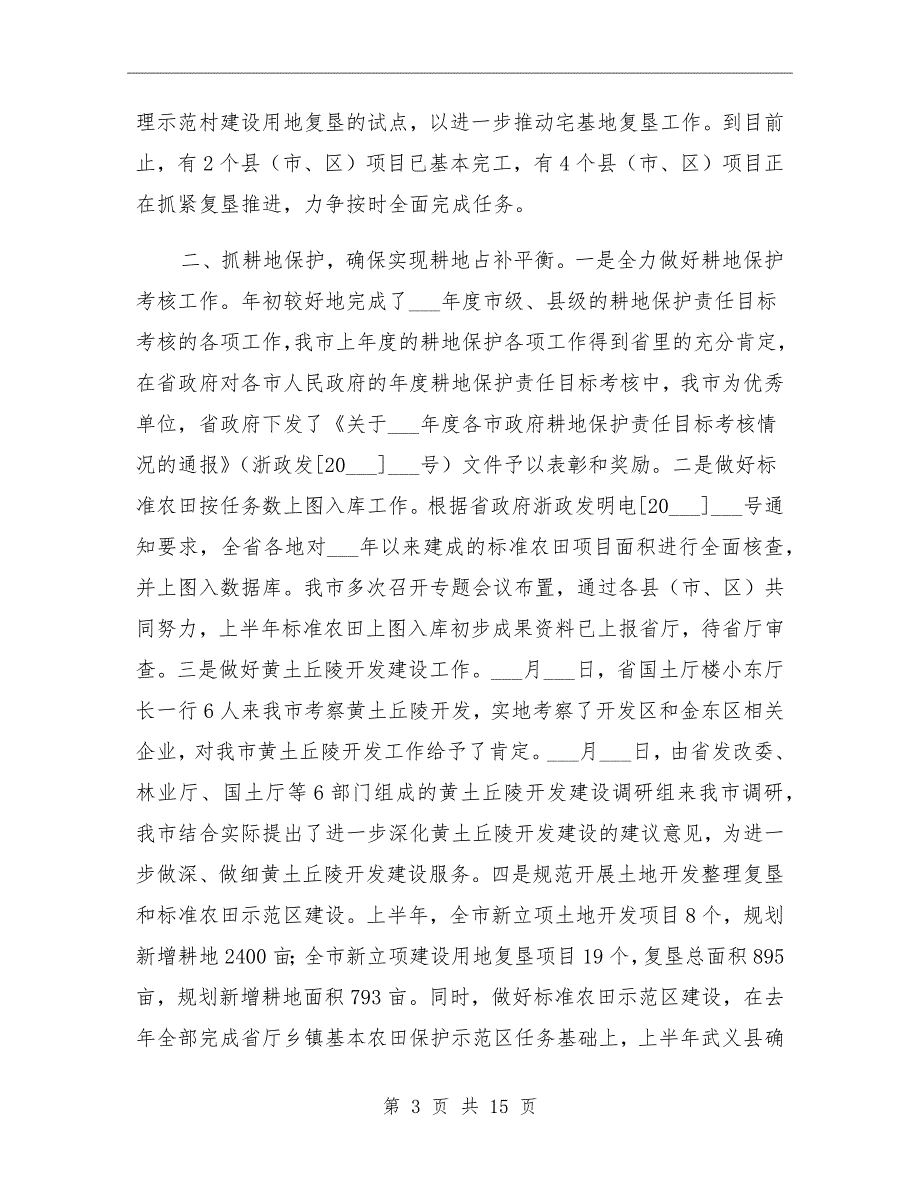 理示范村建设用地复垦的试点，以进一步推动宅基地复垦工作。到目前
止，有 2 个县（市、区）项目已基本完工，有 4 个县（市、区）项目正
在抓紧复垦推进，力争按时全面完成任务。
二、抓耕地保护，确保实现耕地占补平衡。一是全力做好耕地保护
考核工作。年初较好地完成了___年度市级、县级的耕地保护责任目标
考核的各项工作，我市上年度的耕地保护各项工作得到省里的充分肯定，
在省政府对各市人民政府的年度耕地保护责任目标考核中，我市为优秀
单位，省政府下发了《关于___年度各市政府耕地保护责任目标考核情
况的通报》（浙政发[20___]___号）文件予以表彰和奖励。二是做好标
准农田按任务数上图入库工作。根据省政府浙政发明电[20___]___号通
知要求，全省各地对___年以来建成的标准农田项目面积进行全面核查，
并上图入数据库。我市多次召开专题会议布置，通过各县（市、区）共
同努力，上半年标准农田上图入库初步成果资料已上报省厅，待省厅审
查。三是做好黄土丘陵开发建设工作。___月___日，省国土厅楼小东厅
长一行 6 人来我市考察黄土丘陵开发，实地考察了开发区和金东区相关
企业，对我市黄土丘陵开发工作给予了肯定。___月___日，由省发改委、
林业厅、国土厅等 6 部门组成的黄土丘陵开发建设调研组来我市调研，
我市结合实际提出了进一步深化黄土丘陵开发建设的建议意见，为进一
步做深、做细黄土丘陵开发建设服务。四是规范开展土地开发整理复垦
和标准农田示范区建设。上半年，全市新立项土地开发项目 8 个，规划
新增耕地 2400 亩；全市新立项建设用地复垦项目 19 个，复垦总面积 895
亩，规划新增耕地面积 793 亩。同时，做好标准农田示范区建设，在去
年全部完成省厅乡镇基本农田保护示范区任务基础上，上半年武义县确
第 3 页 共 15 页